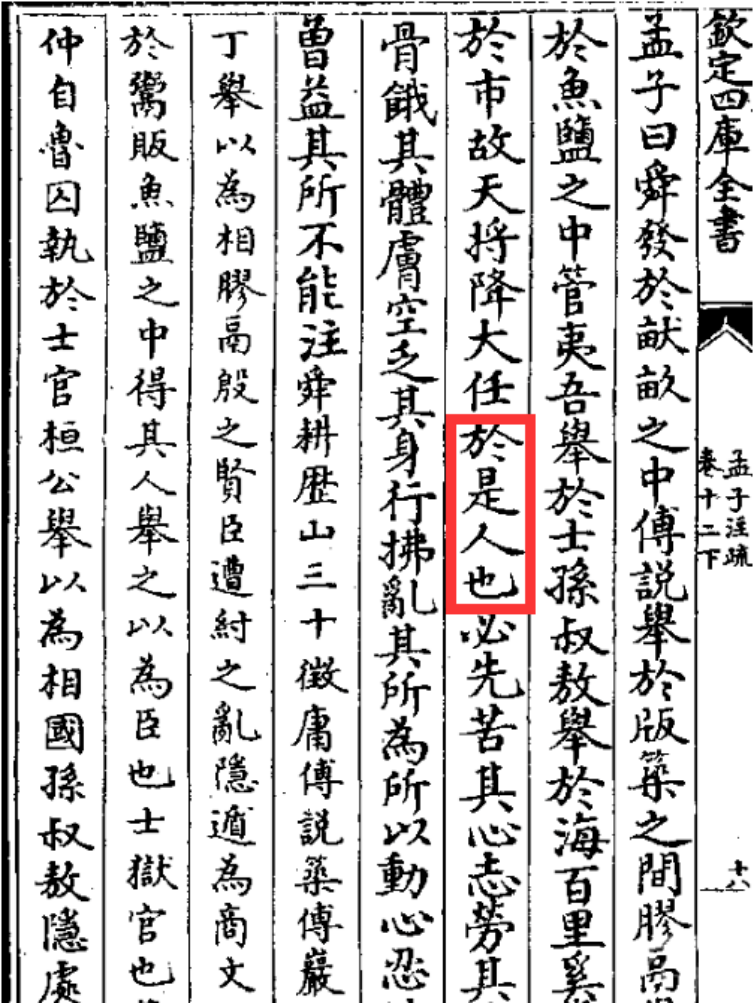 欽定四庫全書
孟子注疏
卷十二下
十八
孟子曰舜發於畎畝之中傅說舉於版築之間膠鬲
於魚鹽之中管夷吾舉於士孫叔敖舉於海百里奚
於市故天將降大任於是人也必先苦其心志勞其
骨餓其體膚空乏其身行拂亂其所為所以動心忍
曾益其所不能注舜耕歷山三十徵庸傅說築傅巖
丁舉以為相膠鬲殷之賢臣遭紂之亂隱遁為商文
於鬻販魚鹽之中得其人舉之以為臣也士獄官也
仲自魯囚執於士官桓公舉以為相國孫叔敖隱處